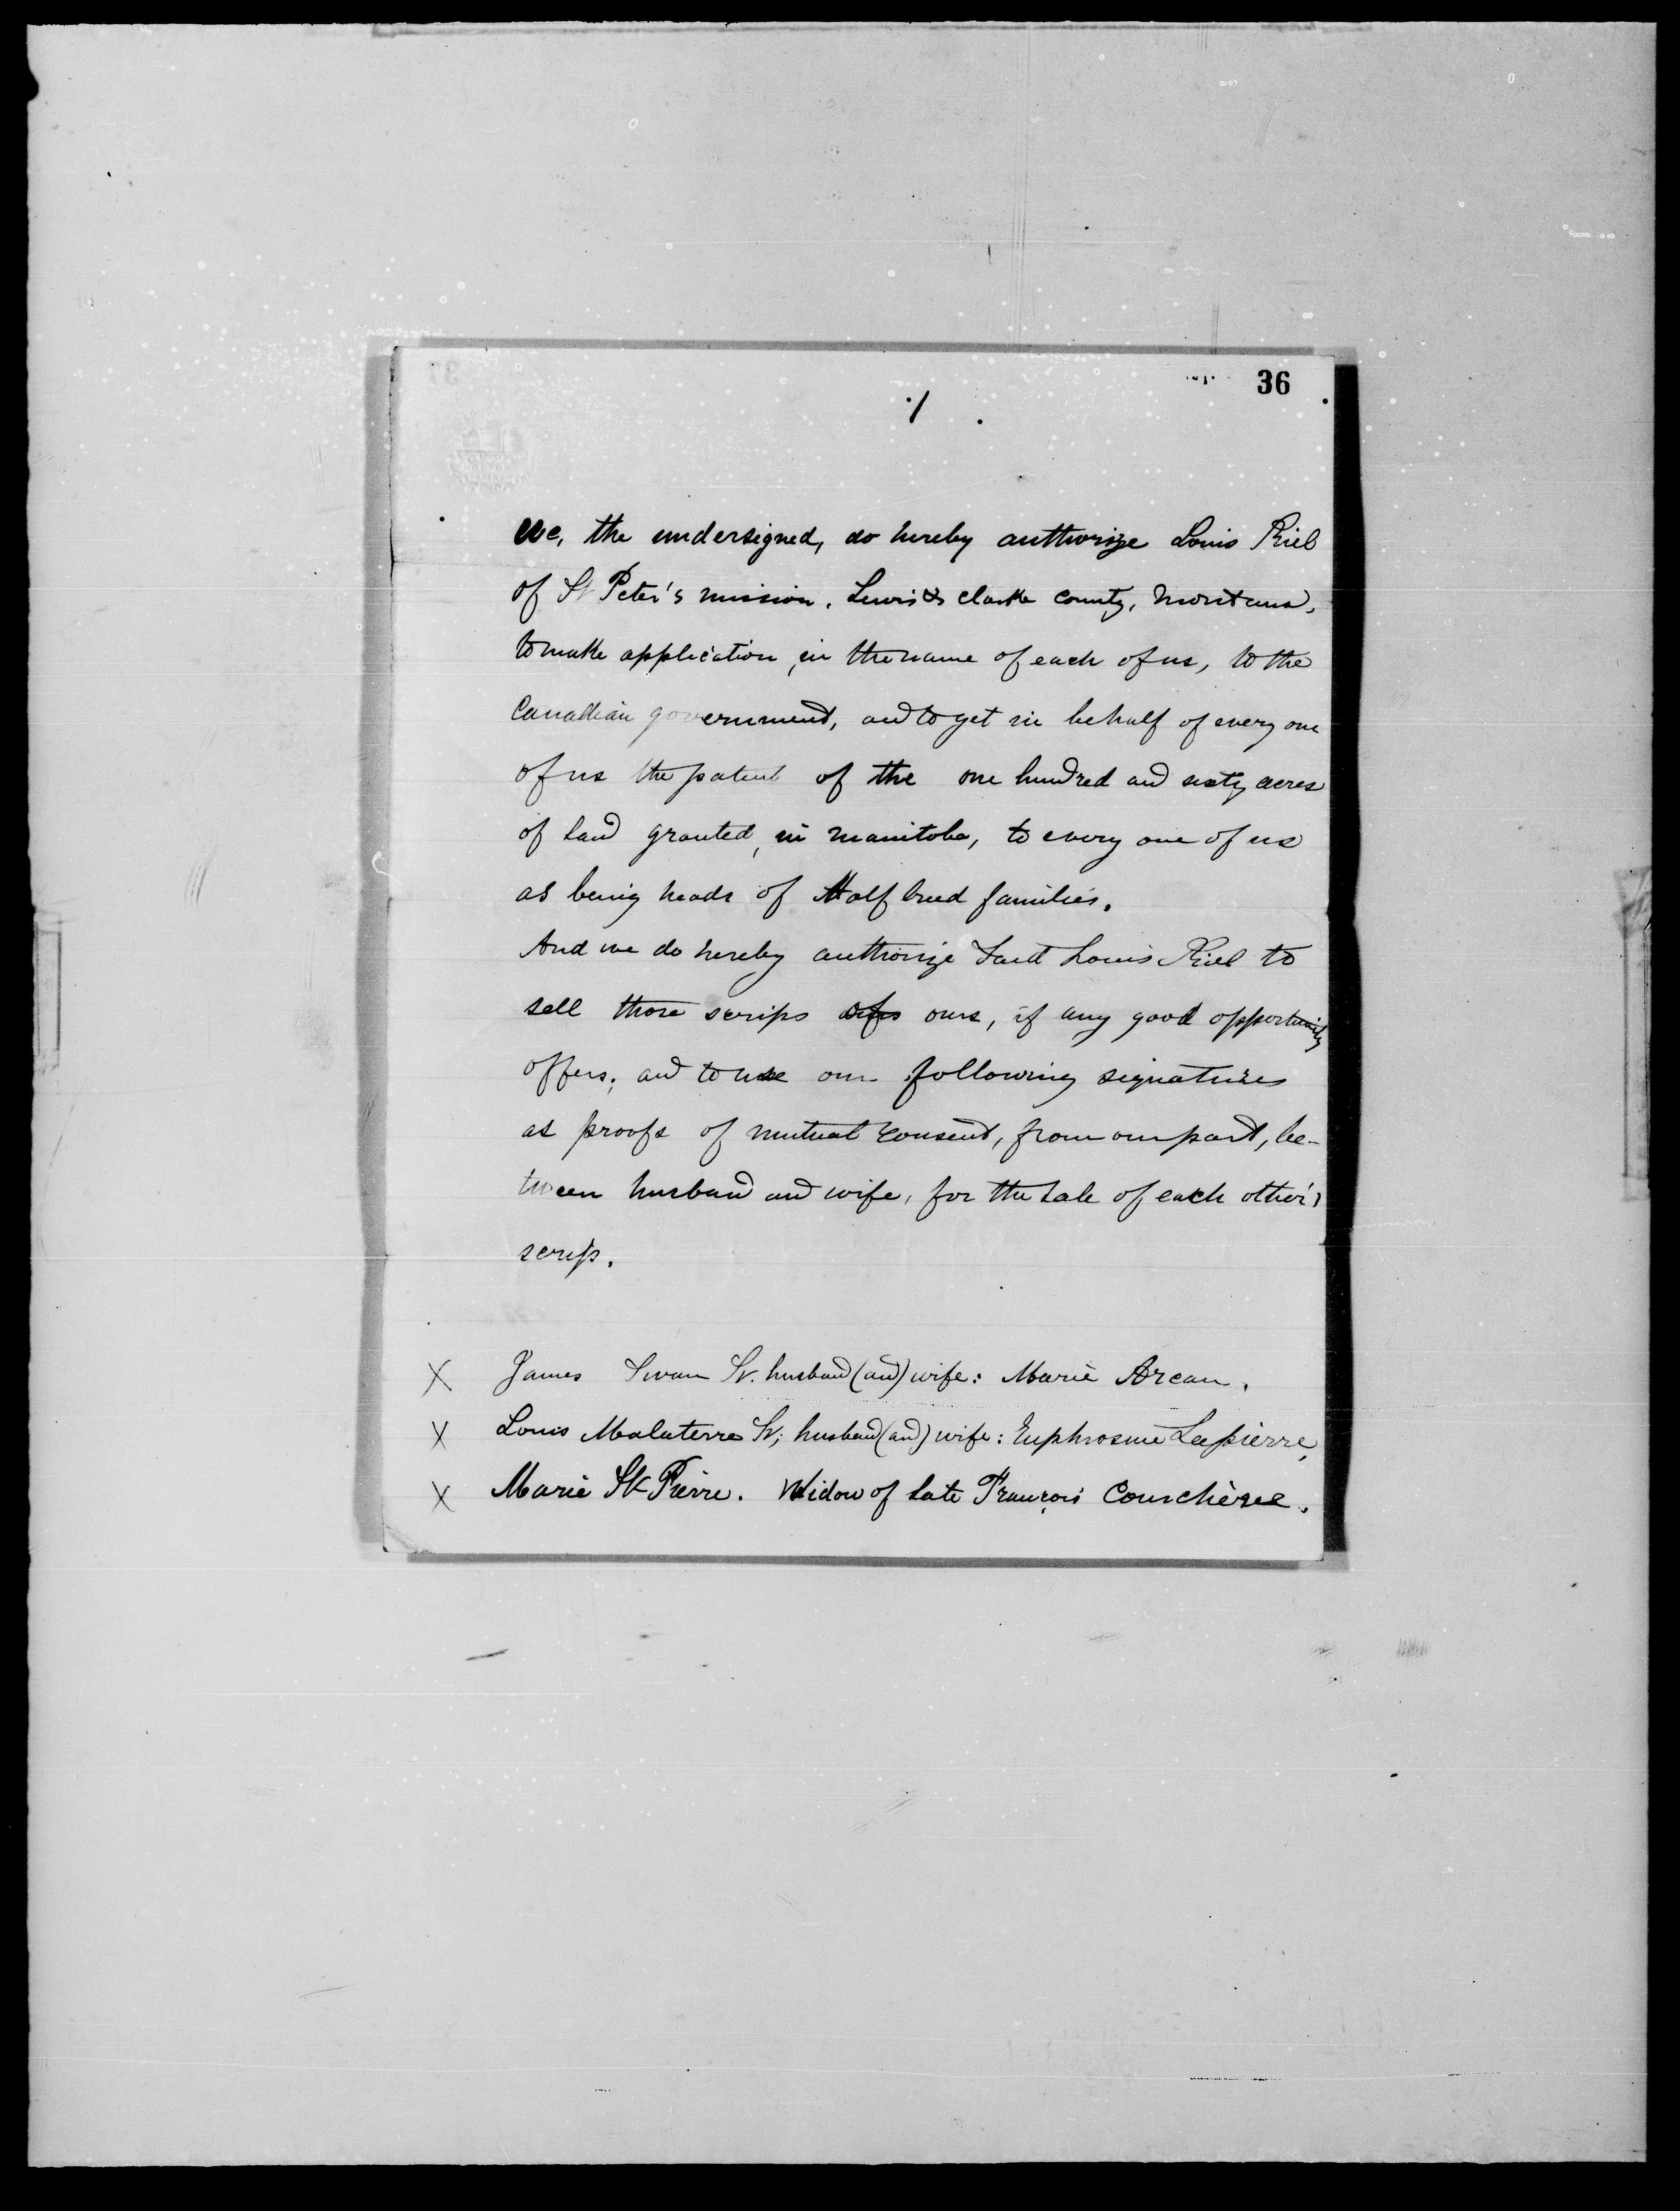 36
1
We, the undersigned, do hereby authorize Louis Riel
of St Peter's mission, Lewis & Clarke county, Montana,
to make application, in the name of each of us, to the
Canadian government, and to get in behalf of every one
of us the patent of the one hundred and sixty acres
of land granted, in Manitoba, to every one of us
as being heads of Half breed families.
And we do hereby authorize Said Louis Riel to
sell those scrips of ours, if any good opportunity
offers; and to use our following signatures
as proofs of mutual consent, from our part, be-
tween husband and wife, for the sale of each other's
scrip.
X James Swan Sr. husband (and) wife: Marie Arcan.
X Louis Malaterre Sr; husband (and) wife: Euphrosine Lapierre,
X Marie St Pierre. Widow of late François Courchèsne.